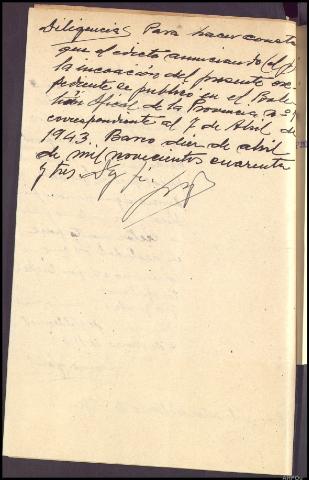 Diligencia: Para hacer constar
que el edicto anunciando
la incoación del presente ex-
pediente se publicó en el Bole-
tín Oficial de la Provincia nº
correspondiente al 7 de Abril de
1943. Barco diez de abril
de mil novecientos cuarenta
y tres.
AHPOU